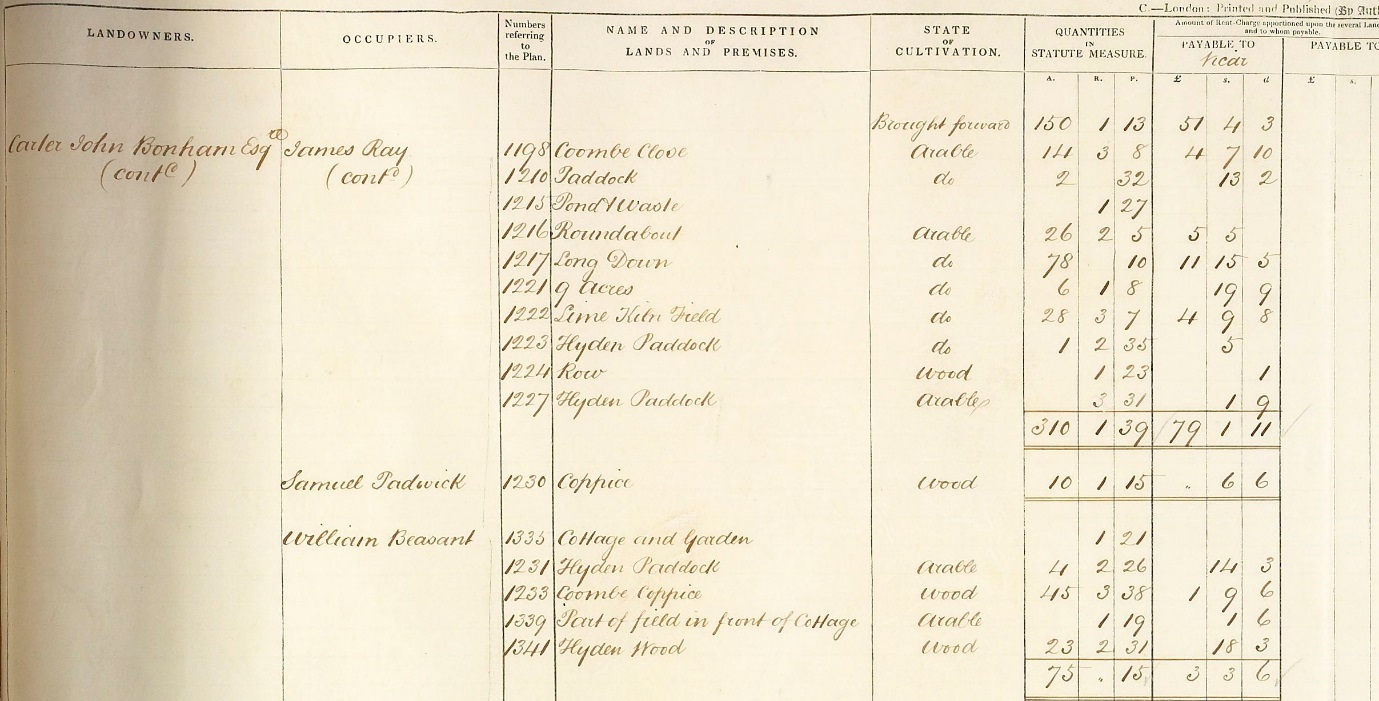 C.—London: Printed and Published (By Auth
LANDOWNERS. OCCUPIERS. Numbers referring to the Plan. NAME AND DESCRIPTION OF LANDS AND PREMISES. STATE OF CULTIVATION. QUANTITIES IN STATUTE MEASURE. Amount of Rent-Charge apportioned upon the several Lands and to whom payable.
PAYABLE TO Vicar PAYABLE TO
A. R. P. £ s. d £ s.
Brought forward 150 1 13 51 4 3
Carter John Bonham Esqre James Ray 1198 Coombe Close Arable 14 3 8 4 7 10
(contd) (contd) 1210 Paddock do 2 32 13 2
1215 Pond & Waste 1 27
1216 Roundabout Arable 26 2 5 5 5
1217 Long Down do 78 10 11 15 5
1221 9 Acres do 6 1 8 19 9
1222 Lime Kiln Field do 28 3 7 4 9 8
1223 Hyden Paddock do 1 2 35 5
1224 Row Wood 1 23 1
1227 Hyden Paddock Arable 3 31 1 9
310 1 39 79 1 11
Samuel Padwick 1230 Coppice Wood 10 1 15 „ 6 6
William Beasant 1335 Cottage and Garden 1 21
1231 Hyden Paddock Arable 4 2 26 14 3
1233 Coombe Coppice Wood 45 3 38 1 9 6
1339 Part of field in front of Cottage Arable 1 19 1 6
1341 Hyden Wood Wood 23 2 31 18 3
75 „ 15 3 3 6